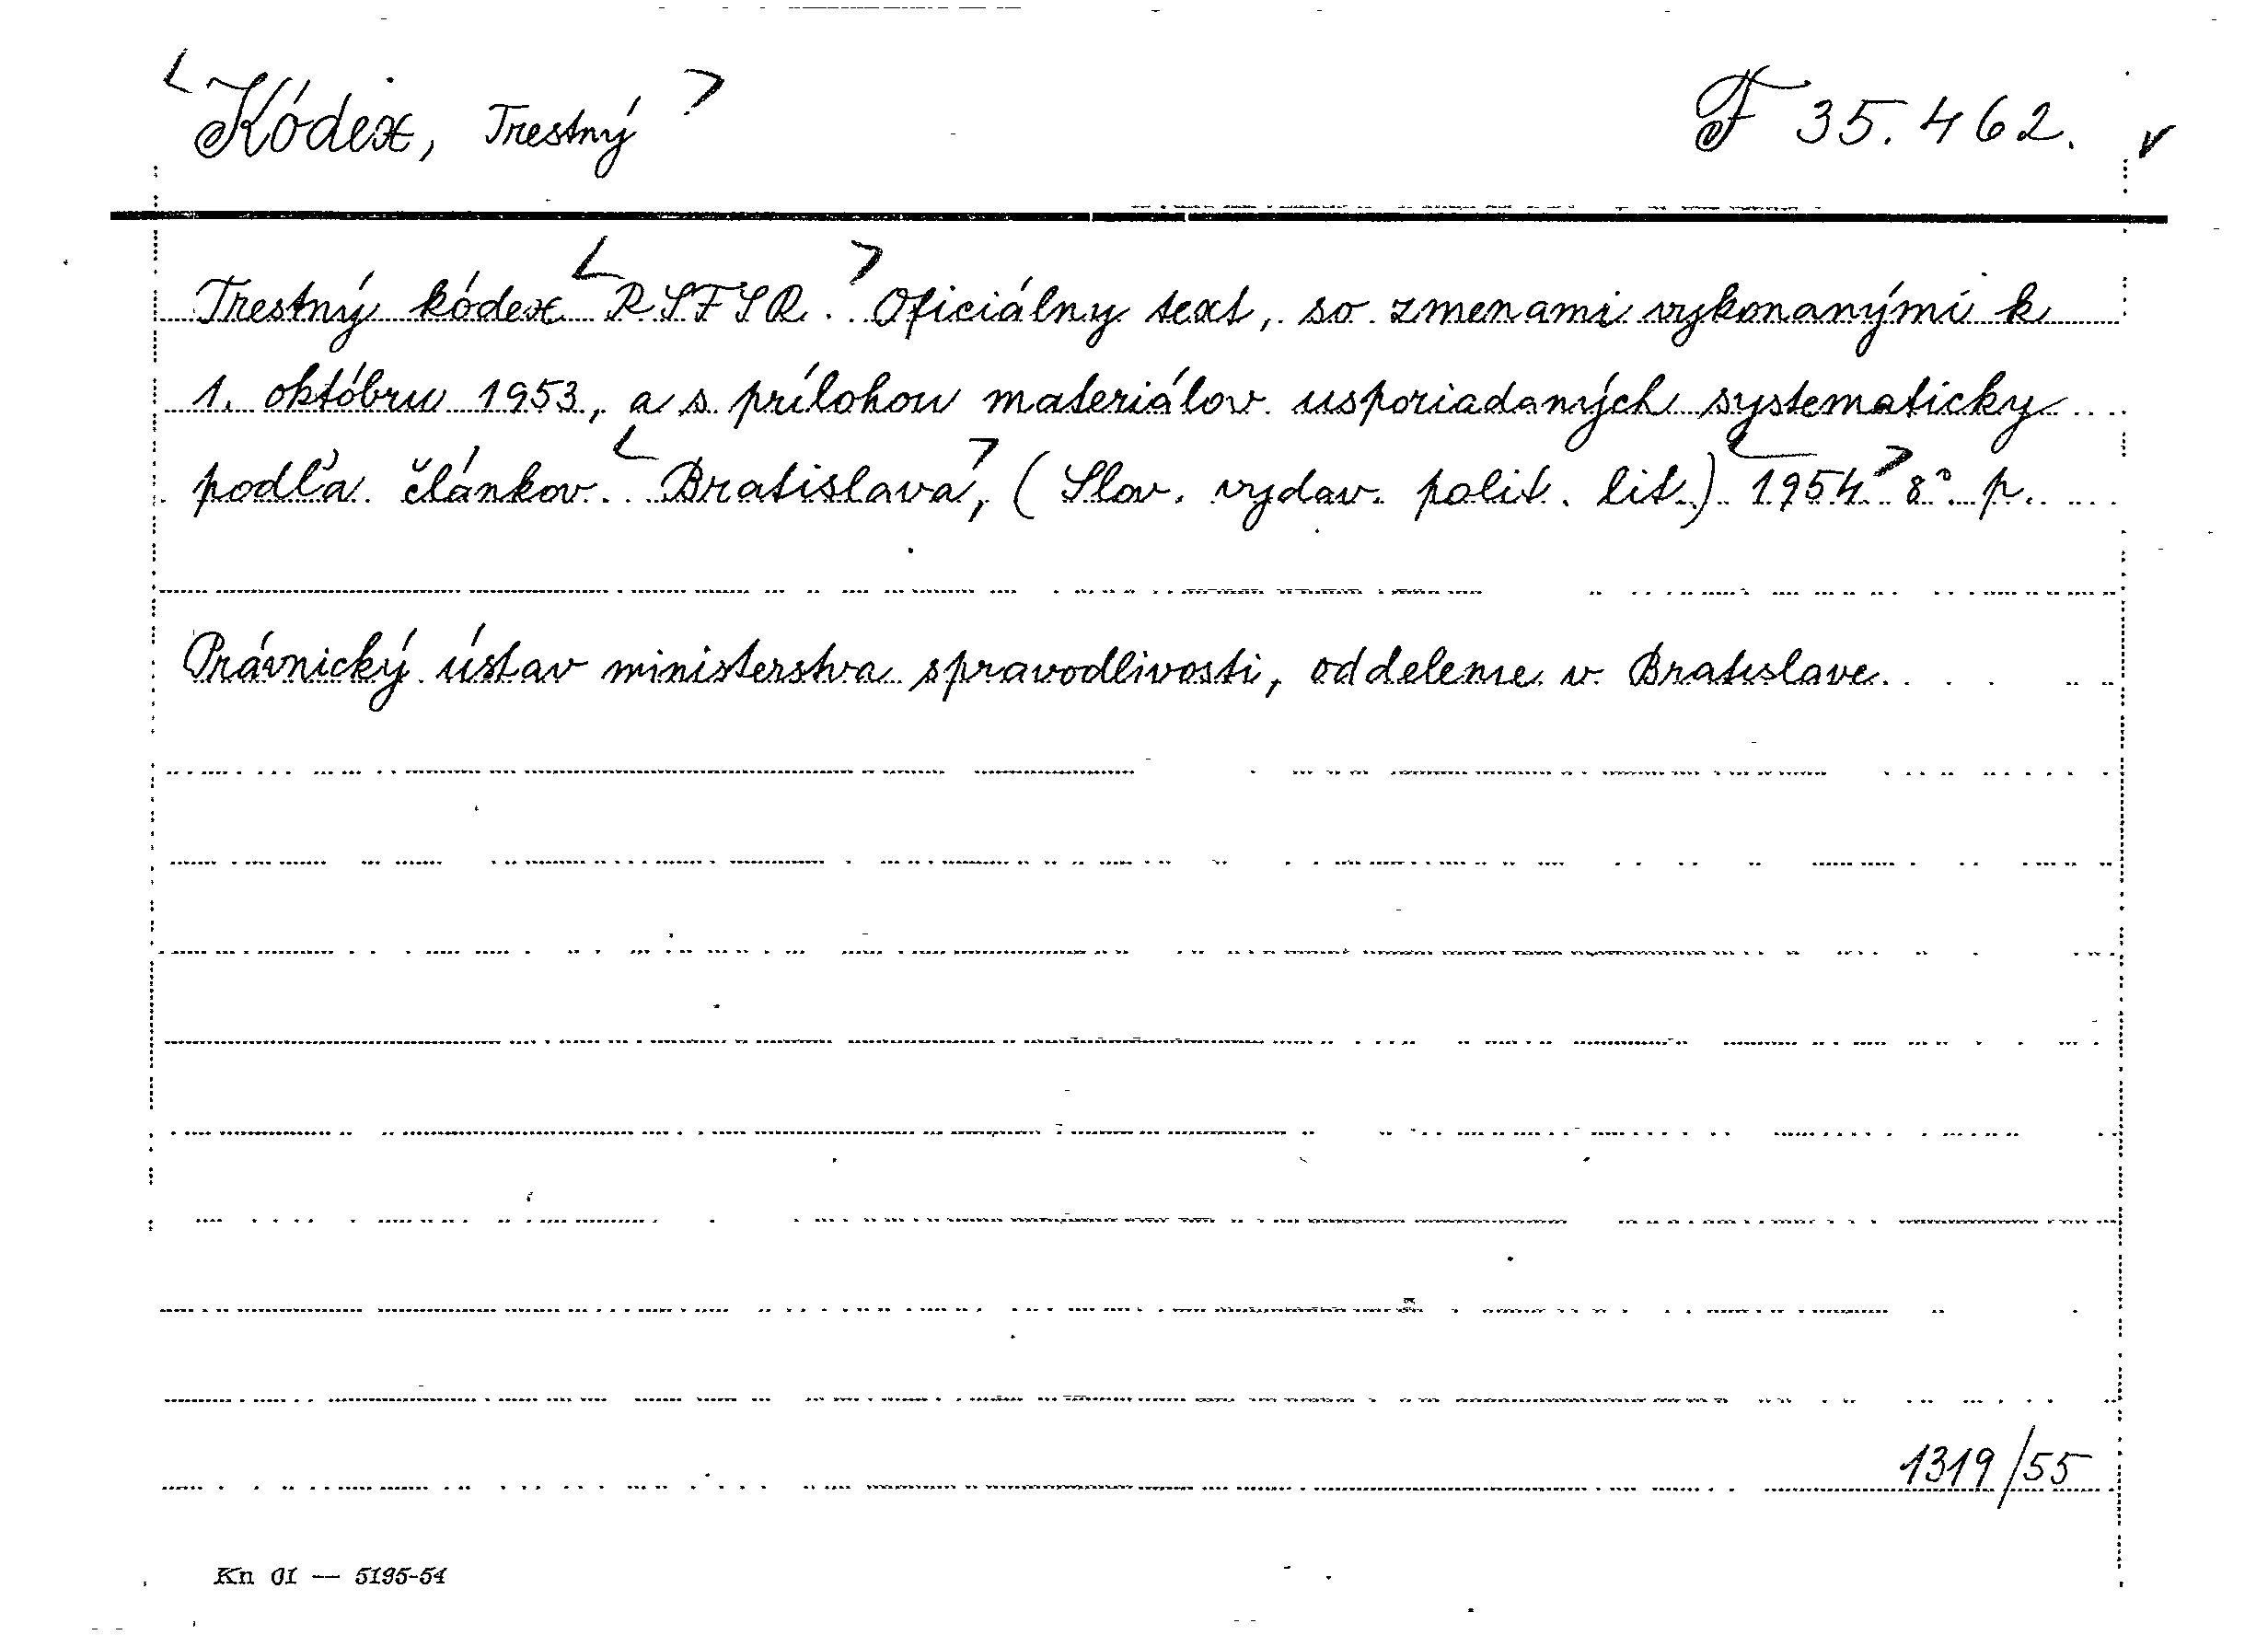 <Kódex, Trestný> F 35.462. v
Trestný kódex <RSFSR.> Oficiálny text, so zmenami vykonanými k
1. októbru 1953, a s prílohou materiálov usporiadaných systematicky
podľa článkov. <Bratislava,> (Slov. vydav. polit. lit.) <1954> 8° p.
Právnický ústav ministerstva spravodlivosti, oddelenie v Bratislave.
1319/55
Kn 01 — 5195-54